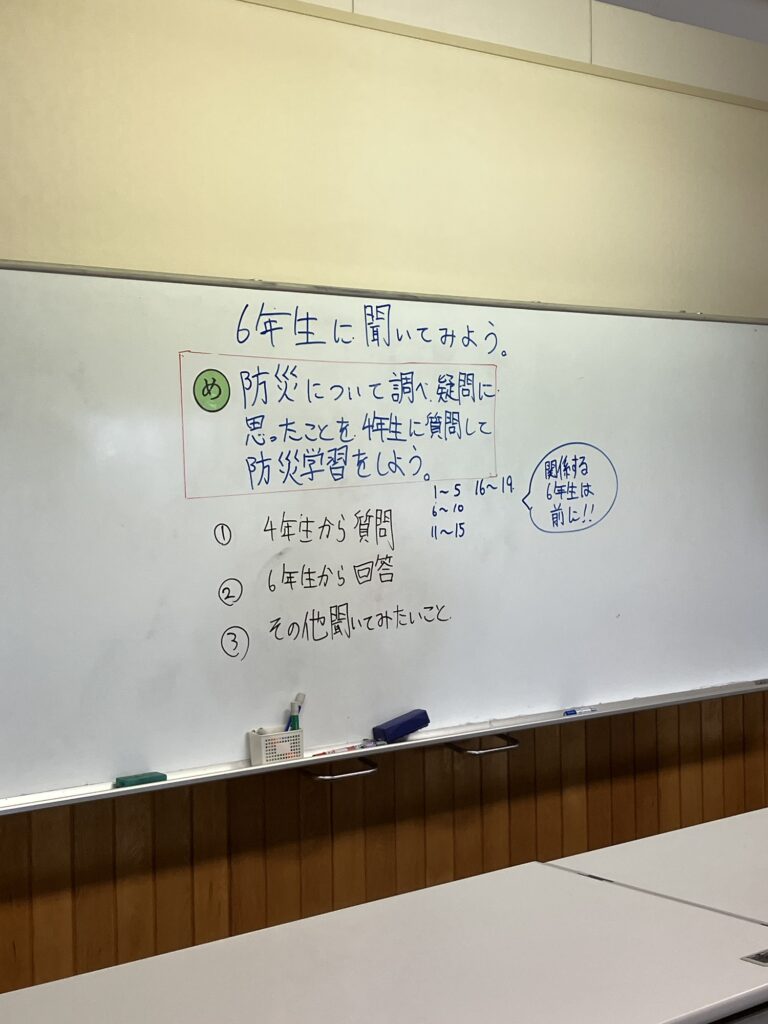 6年生に聞いてみよう。
め 防災について調べ疑問に
思ったことを4年生に質問して
防災学習をしよう。
① 4年生から質問
1〜5 16〜19
6〜10
11〜15
関係する
6年生は
前に!!
② 6年生から回答
③ その他聞いてみたいこと